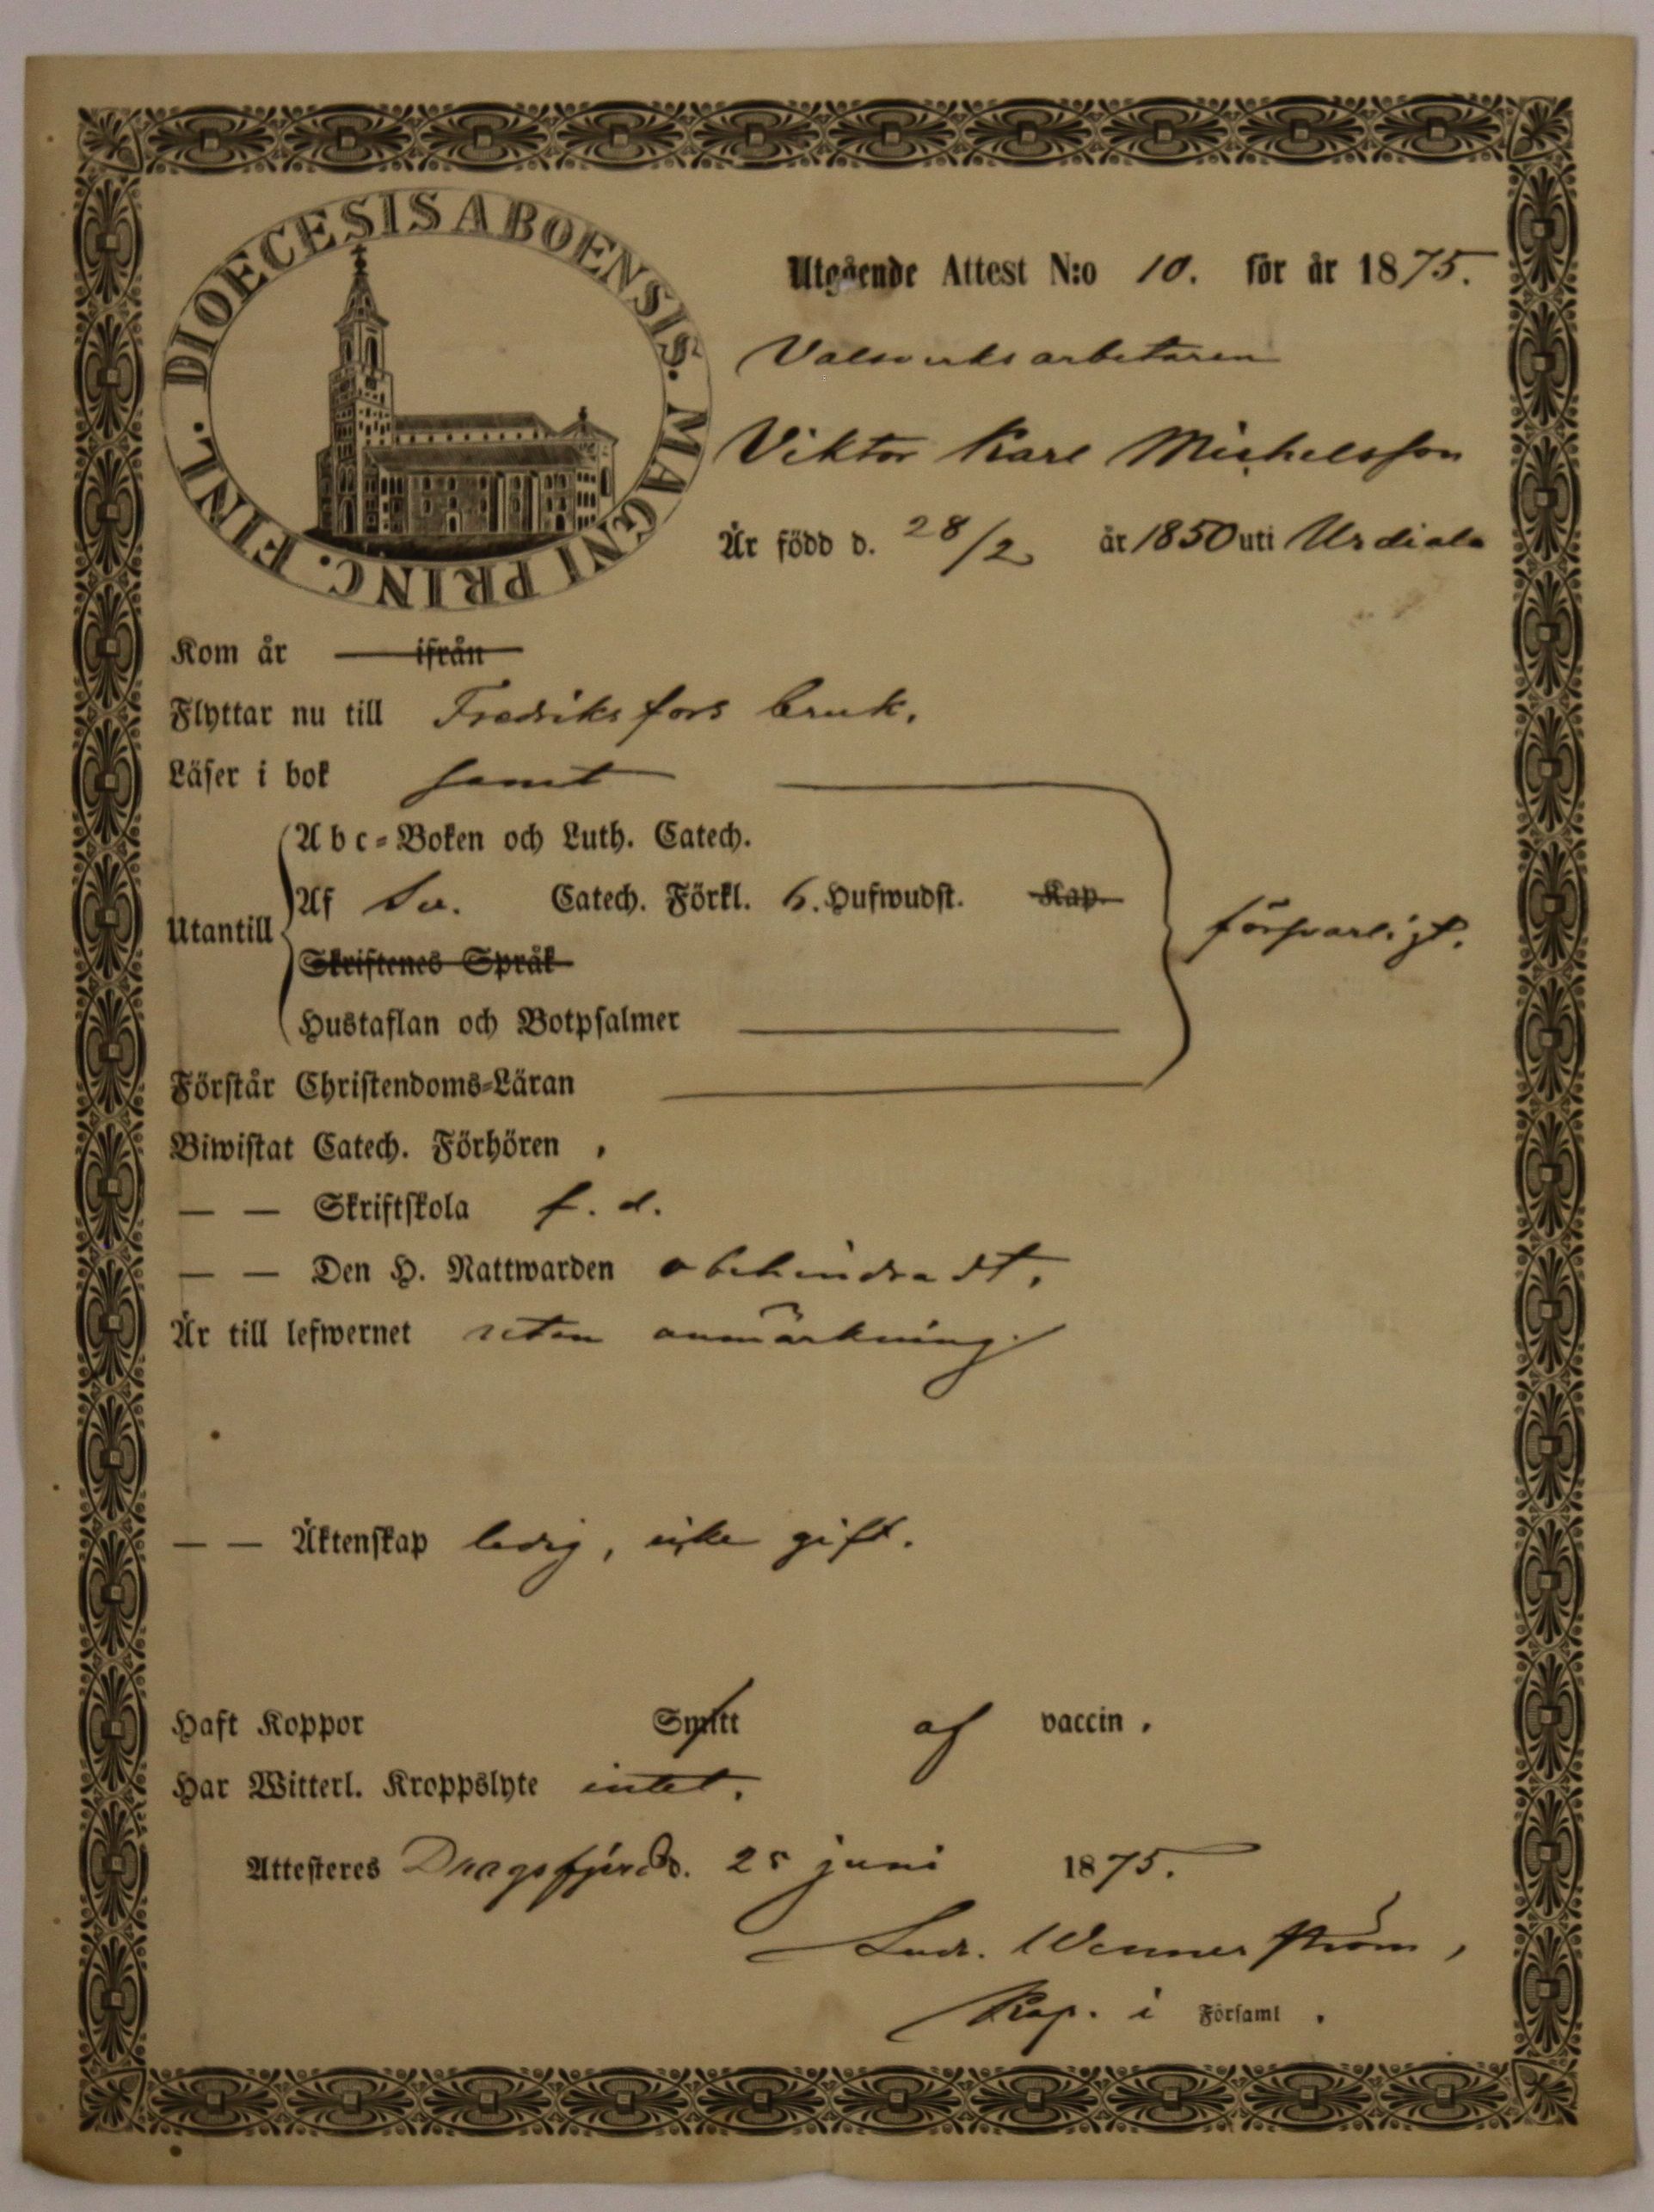 DIOECESIS ABOENSIS. MAGNI PRINC. FINL.
Utgående Attest N:o 10. för år 1875.
Valsverksarbetaren
Viktor Karl Michelsson
Är född d. 28/2 år 1850 uti Urdiala
Kom år ifrån
Flyttar nu till Fredriksfors bruk.
Läser i bok samt
Abc-Boken och Luth. Catech.
Utantill Af Sv. Catech. Förkl. 6. Hufwudst. Kap. försvarligt.
Skriftenes Språk
Hustaflan och Botpsalmer
Förstår Christendoms-Läran
Biwistat Catech. Förhören,
— — Skriftskola f. d.
— — Den H. Nattwarden obehindradt.
Är till lefwernet utan anmärkning.
— — Äktenskap ledig, icke gift.
Haft Koppor Smitt af vaccin.
Har Witterl. Kroppslyte intet.
Attesteres Dragsfjerd d. 25 juni 1875.
Ludv. Wennerström,
Kap. i Församl.